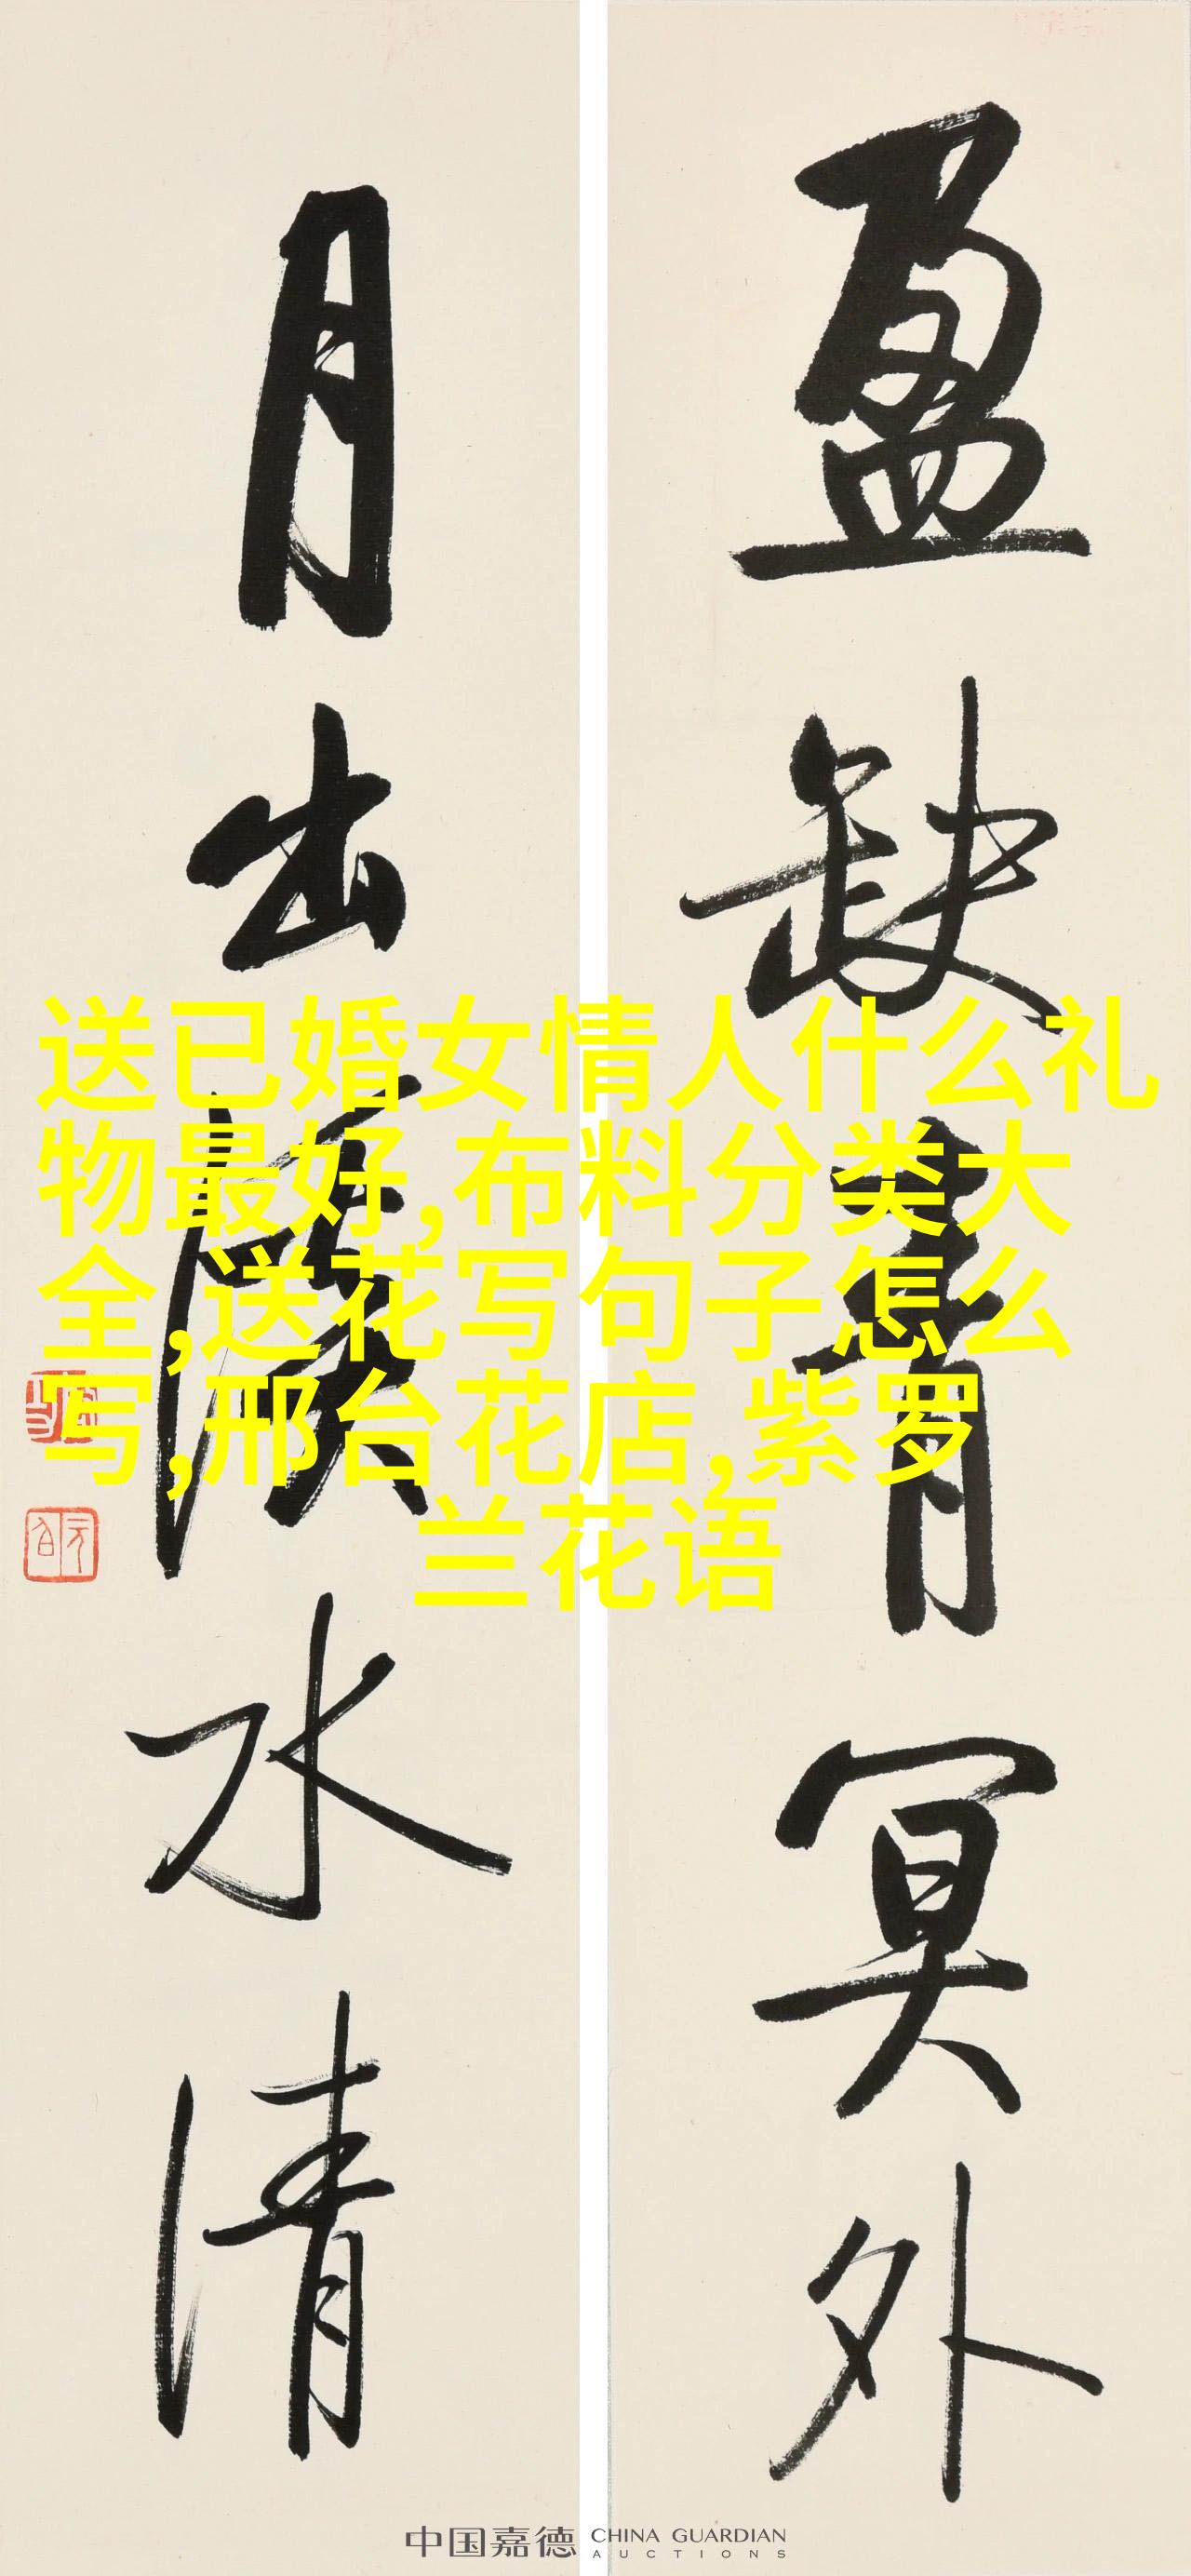 盈缺青冥外
月出水清
送已婚女情人什么礼
物最好,布料分类大
全,送花写句子怎么
写,邢台花店,紫罗
兰花语
中国嘉德 CHINA GUARDIAN
AUCTIONS